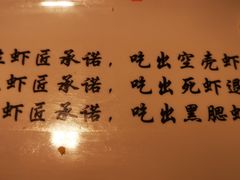 虾匠承诺，吃出空壳虾
虾匠承诺，吃出死虾退
虾匠承诺，吃出黑腮虾